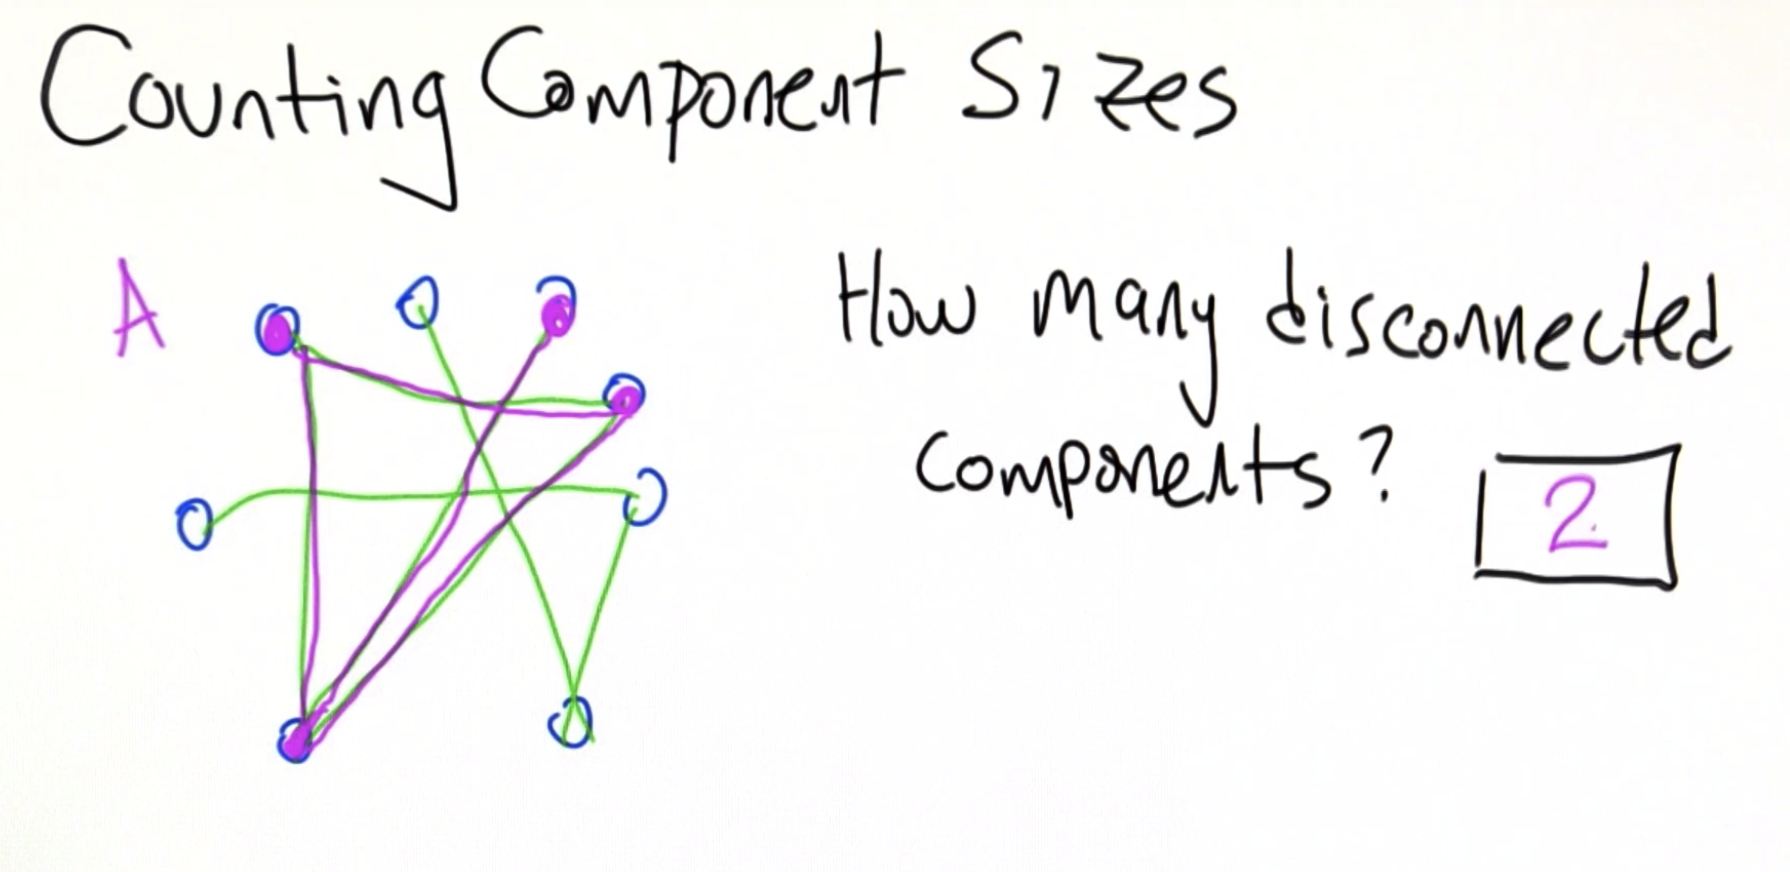 Counting Component Sizes
A
How many disconnected
components?
2